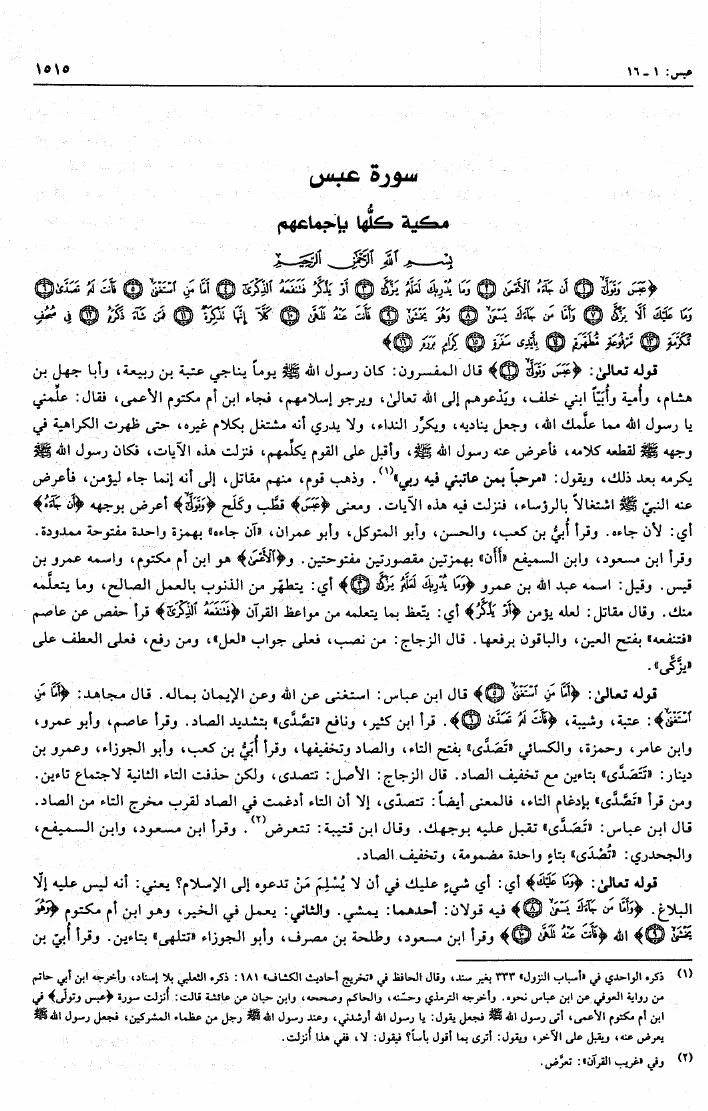 عبس: ١ ـ ١٦
١٥١٥
سورة عبس
مكية كلُّها بإجماعهم
بِسْمِ اللَّهِ الرَّحْمَٰنِ الرَّحِيمِ
﴿عَبَسَ وَتَوَلَّىٰٓ ۝١ أَن جَآءَهُ ٱلْأَعْمَىٰ ۝٢ وَمَا يُدْرِيكَ لَعَلَّهُۥ يَزَّكَّىٰٓ ۝٣ أَوْ يَذَّكَّرُ فَنَنفَعَهُ ٱلذِّكْرَىٰٓ ۝٤ أَمَّا مَنِ ٱسْتَغْنَىٰ ۝٥ فَأَنتَ لَهُۥ تَصَدَّىٰ ۝٦
وَمَا عَلَيْكَ أَلَّا يَزَّكَّىٰ ۝٧ وَأَمَّا مَن جَآءَكَ يَسْعَىٰ ۝٨ وَهُوَ يَخْشَىٰ ۝٩ فَأَنتَ عَنْهُ تَلَهَّىٰ ۝١٠ كَلَّآ إِنَّهَا تَذْكِرَةٌ ۝١١ فَمَن شَآءَ ذَكَرَهُۥ ۝١٢ فِى صُحُفٍ
مُّكَرَّمَةٍ ۝١٣ مَّرْفُوعَةٍ مُّطَهَّرَةٍۭ ۝١٤ بِأَيْدِى سَفَرَةٍ ۝١٥ كِرَامٍۭ بَرَرَةٍ ۝١٦﴾
قوله تعالى: ﴿عَبَسَ وَتَوَلَّىٰٓ ۝١﴾ قال المفسرون: كان رسول الله ﷺ يوماً يناجي عتبة بن ربيعة، وأبا جهل بن
هشام، وأُمية وأُبَيّاً ابني خلف، ويَدْعوهم إلى الله تعالىٰ، ويرجو إسلامهم، فجاء ابن أم مكتوم الأعمى، فقال: علِّمني
يا رسول الله مما علَّمك الله، وجعل يناديه، ويكرِّر النداء، ولا يدري أنه مشتغل بكلام غيره، حتى ظهرت الكراهية في
وجهه ﷺ لقطعه كلامه، فأعرض عنه رسول الله ﷺ، وأقبل على القوم يكلِّمهم، فنزلت هذه الآيات، فكان رسول الله ﷺ
يكرمه بعد ذلك، ويقول: «مرحباً بمن عاتبني فيه ربي»(١). وذهب قوم، منهم مقاتل، إلى أنه إنما جاء ليؤمن، فأعرض
عنه النبيّ ﷺ اشتغالاً بالرؤساء، فنزلت فيه هذه الآيات. ومعنى ﴿عَبَسَ﴾ قطَّب وكَلَح ﴿وَتَوَلَّىٰٓ﴾ أعرض بوجهه ﴿أَن جَآءَهُ﴾
أي: لأن جاءه. وقرأ أُبيُّ بن كعب، والحسن، وأبو المتوكل، وأبو عمران، «آن جاءه» بهمزة واحدة مفتوحة ممدودة.
وقرأ ابن مسعود، وابن السميفع «أَأَن» بهمزتين مقصورتين مفتوحتين. و﴿ٱلْأَعْمَىٰ﴾ هو ابن أم مكتوم، واسمه عمرو بن
قيس. وقيل: اسمه عبد الله بن عمرو ﴿وَمَا يُدْرِيكَ لَعَلَّهُۥ يَزَّكَّىٰٓ ۝٣﴾ أي: يتطهّر من الذنوب بالعمل الصالح، وما يتعلَّمه
منك. وقال مقاتل: لعله يؤمن ﴿أَوْ يَذَّكَّرُ﴾ أي: يتَّعظ بما يتعلمه من مواعظ القرآن ﴿فَنَنفَعَهُ ٱلذِّكْرَىٰٓ﴾ قرأ حفص عن عاصم
«فتنفعه» بفتح العين، والباقون برفعها. قال الزجاج: من نصب، فعلى جواب «لعل»، ومن رفع، فعلى العطف على
«يزَّكَّى».
قوله تعالى: ﴿أَمَّا مَنِ ٱسْتَغْنَىٰ ۝٥﴾ قال ابن عباس: استغنى عن الله وعن الإيمان بماله. قال مجاهد: ﴿أَمَّا مَنِ
ٱسْتَغْنَىٰ﴾: عتبة، وشيبة، ﴿فَأَنتَ لَهُۥ تَصَدَّىٰ ۝٦﴾. قرأ ابن كثير، ونافع «تصَّدَّى» بتشديد الصاد. وقرأ عاصم، وأبو عمرو،
وابن عامر، وحمزة، والكسائي «تَصَدَّى» بفتح التاء، والصاد وتخفيفها، وقرأ أُبَيُّ بن كعب، وأبو الجوزاء، وعمرو بن
دينار: «تَتَصَدَّى» بتاءين مع تخفيف الصاد. قال الزجاج: الأصل: تتصدى، ولكن حذفت التاء الثانية لاجتماع تاءين.
ومن قرأ «تَصَّدَّى» بإدغام التاء، فالمعنى أيضاً: تتصدّى، إلا أن التاء أدغمت في الصاد لقرب مخرج التاء من الصاد.
قال ابن عباس: «تَصَدَّى» تقبل عليه بوجهك. وقال ابن قتيبة: تتعرض(٢). وقرأ ابن مسعود، وابن السميفع،
والجحدري: «تُصْدَى» بتاءٍ واحدة مضمومة، وتخفيف الصاد.
قوله تعالى: ﴿وَمَا عَلَيْكَ﴾ أي: أي شيءٍ عليك في أن لا يُسْلِمَ مَنْ تدعوه إلى الإسلام؟ يعني: أنه ليس عليه إلّا
البلاغ. ﴿وَأَمَّا مَن جَآءَكَ يَسْعَىٰ ۝٨﴾ فيه قولان: أحدهما: يمشي. والثاني: يعمل في الخير، وهو ابن أم مكتوم ﴿وَهُوَ
يَخْشَىٰ ۝٩﴾ الله ﴿فَأَنتَ عَنْهُ تَلَهَّىٰ ۝١٠﴾ وقرأ ابن مسعود، وطلحة بن مصرف، وأبو الجوزاء «تتلهى» بتاءين. وقرأ أُبيّ بن
(١) ذكره الواحدي في «أسباب النزول» ٣٣٣ بغير سند، وقال الحافظ في «تخريج أحاديث الكشاف» ١٨١: ذكره الثعلبي بلا إسناد، وأخرجه ابن أبي حاتم
من رواية العوفي عن ابن عباس نحوه. وأخرجه الترمذي وحسّنه، والحاكم وصححه، وابن حبان عن عائشة قالت: أُنزلت سورة ﴿عبس وتولَّى﴾ في
ابن أم مكتوم الأعمى، أتى رسول الله ﷺ فجعل يقول: يا رسول الله أرشدني، وعند رسول الله ﷺ رجل من عظماء المشركين، فجعل رسول الله ﷺ
يعرض عنه، ويقبل على الآخر، ويقول: أترى بما أقول بأساً؟ فيقول: لا، ففي هذا أُنزلت.
(٢) وفي «غريب القرآن»: تعرَّض.